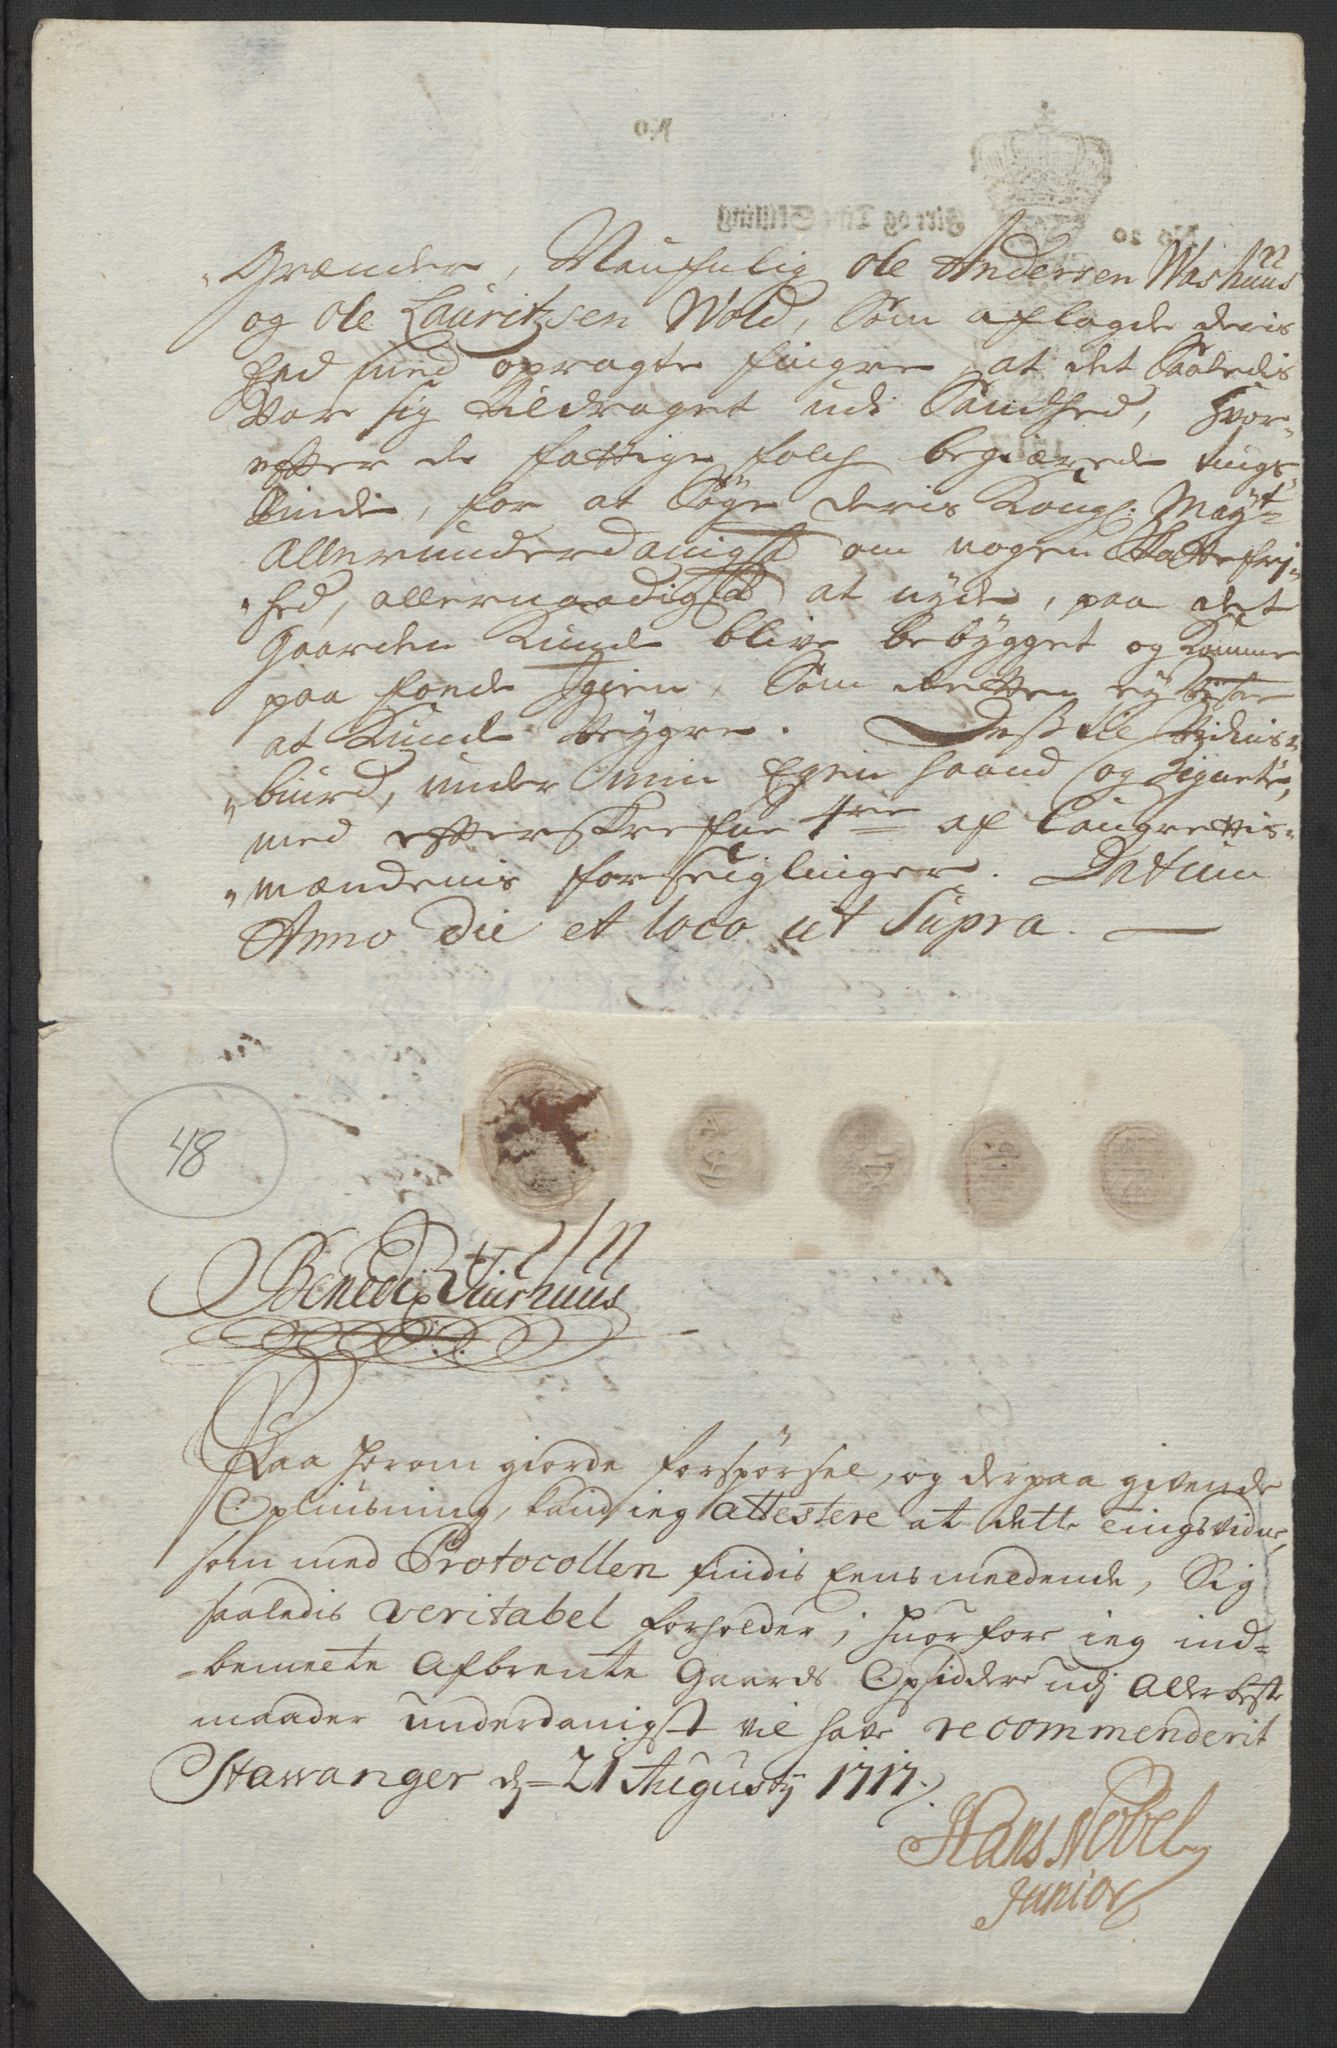 Grander, Naufnlig Ole Andersen Washuus
og Ole Lauritzsen Wold, Som aflagde deris
Eed med opragte fingre, at det Saaledis
Var sig tildraget udi Sandhed, hvor-
effter de fattige folch begierede tings
Vinde, for at Søge deris Kongl: Mayt:
Allerunderdanigst om nogen Skattefrj-
hed, allernaadigst at nyde, paa det
Gaarden Kunde blive bebygget og Komme
paa fode Igien, Som de ellers ey
at Kunde bygge. Dess til Vidnis-
buird, under min Egen haand og Signete,
med effterskrefne 4re af Laugrettis-
mændenis forseiglinger. Datum
Anno Die et loco ut Supra.
48
Benedix Tiurhuus
Paa herom giorde forspørsel, og derpaa givende
Opliusning, kand ieg attestere at dette tingsvidne,
som med Protocollen findis Eensmeldende, Sig
saaledis veritabel forholder; huorfore ieg ind-
bemelte Afbrente Gaards Opsiddere udj Allerbeste
maader underdanigst vil have recommenderit
Stawanger d: 21 Augustij 1717.
Hans Nobel
Junior